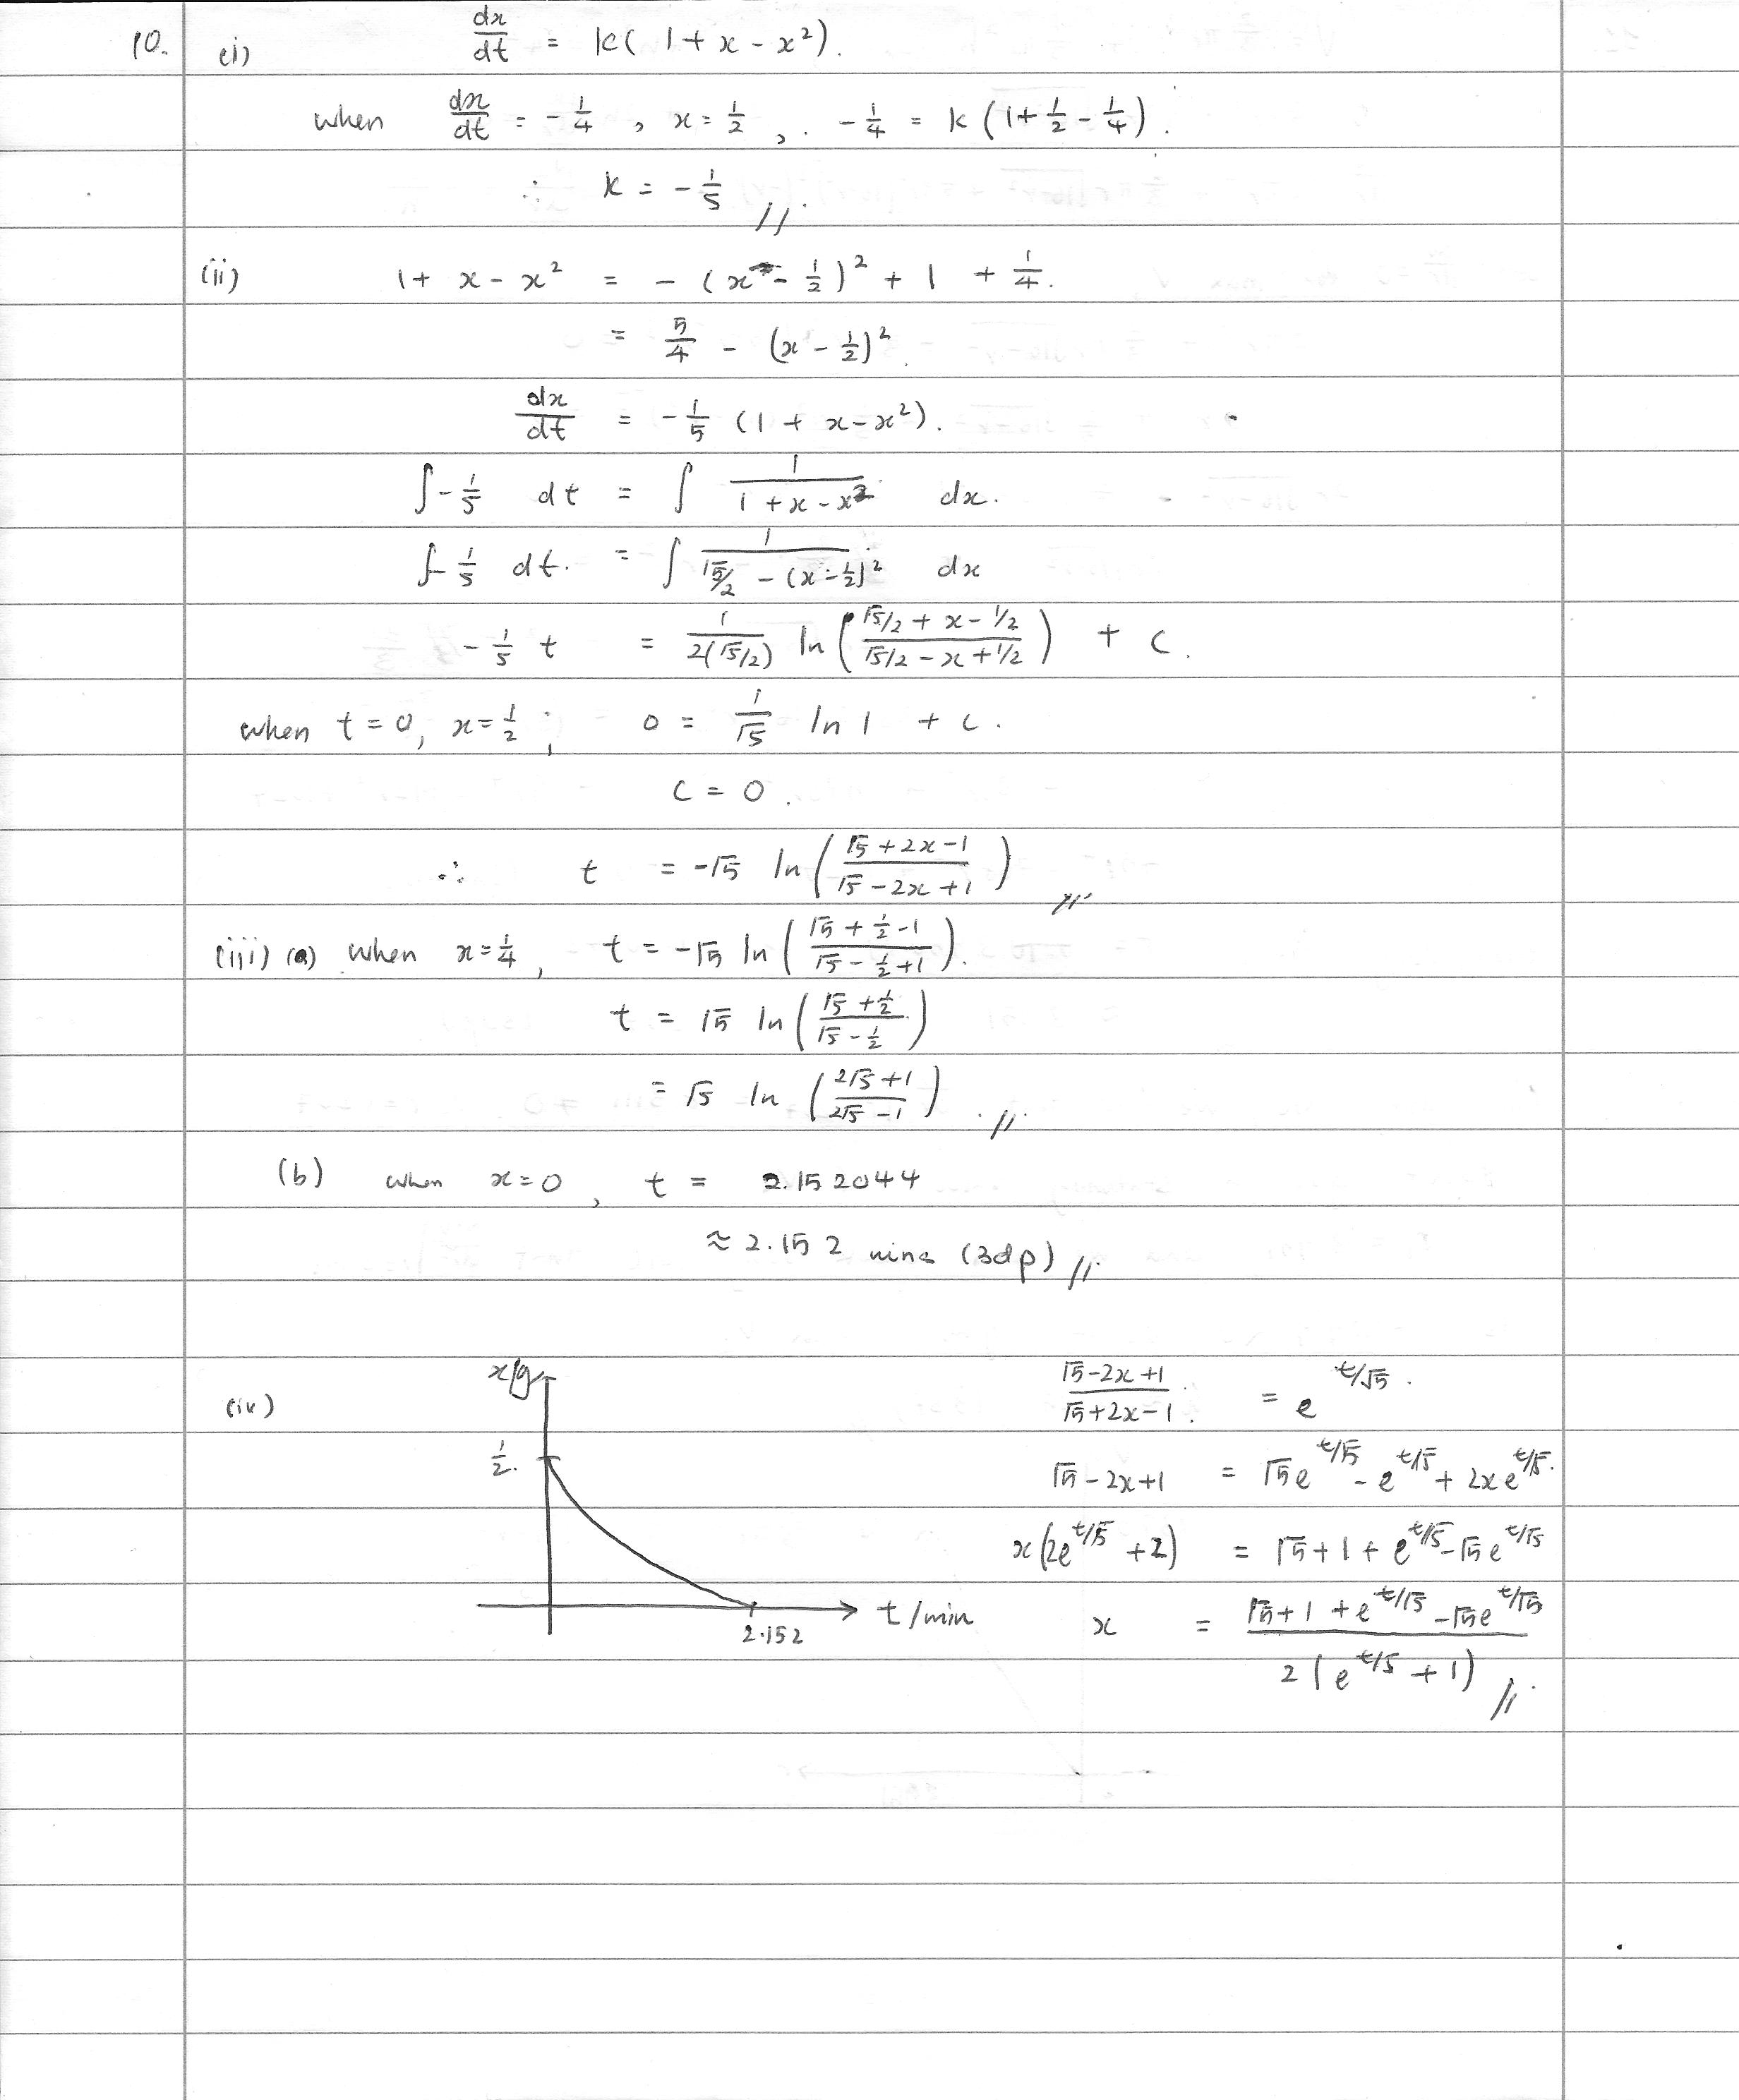 10. (i) dx/dt = k( 1 + x - x²).
when dx/dt = - 1/4 , x = 1/2 , . - 1/4 = k (1 + 1/2 - 1/4) .
∴ k = - 1/5 //.
(ii) 1 + x - x² = - (x - 1/2)² + 1 + 1/4.
= 5/4 - (x - 1/2)².
dx/dt = - 1/5 (1 + x - x²).
∫ - 1/5 dt = ∫ 1/(1 + x - x²) dx.
∫ - 1/5 dt. = ∫ 1/(√5/2 - (x - 1/2)²) dx
- 1/5 t = 1/(2(√5/2)) ln ( (√5/2 + x - 1/2)/(√5/2 - x + 1/2) ) + c.
when t = 0, x = 1/2 ; 0 = 1/√5 ln 1 + c.
c = 0.
∴ t = -√5 ln ( (√5 + 2x - 1)/(√5 - 2x + 1) ) //.
(iii) (a) when x = 1/4, t = -√5 ln ( (√5 + 1/2 - 1)/(√5 - 1/2 + 1) ).
t = √5 ln ( (√5 + 1/2)/(√5 - 1/2) )
= √5 ln ( (2√5 + 1)/(2√5 - 1) ) . //.
(b) when x = 0, t = 2.152044
≈ 2.152 mins (3dp) //.
(iv) x/g
1/2.
2.152
t/min
(√5 - 2x + 1)/(√5 + 2x - 1) = e^(t/√5).
√5 - 2x + 1 = √5e^(t/√5) - e^(t/√5) + 2xe^(t/√5).
x(2e^(t/√5) + 2) = √5 + 1 + e^(t/√5) - √5e^(t/√5)
x = (√5 + 1 + e^(t/√5) - √5e^(t/√5))/(2(e^(t/5) + 1)) //.